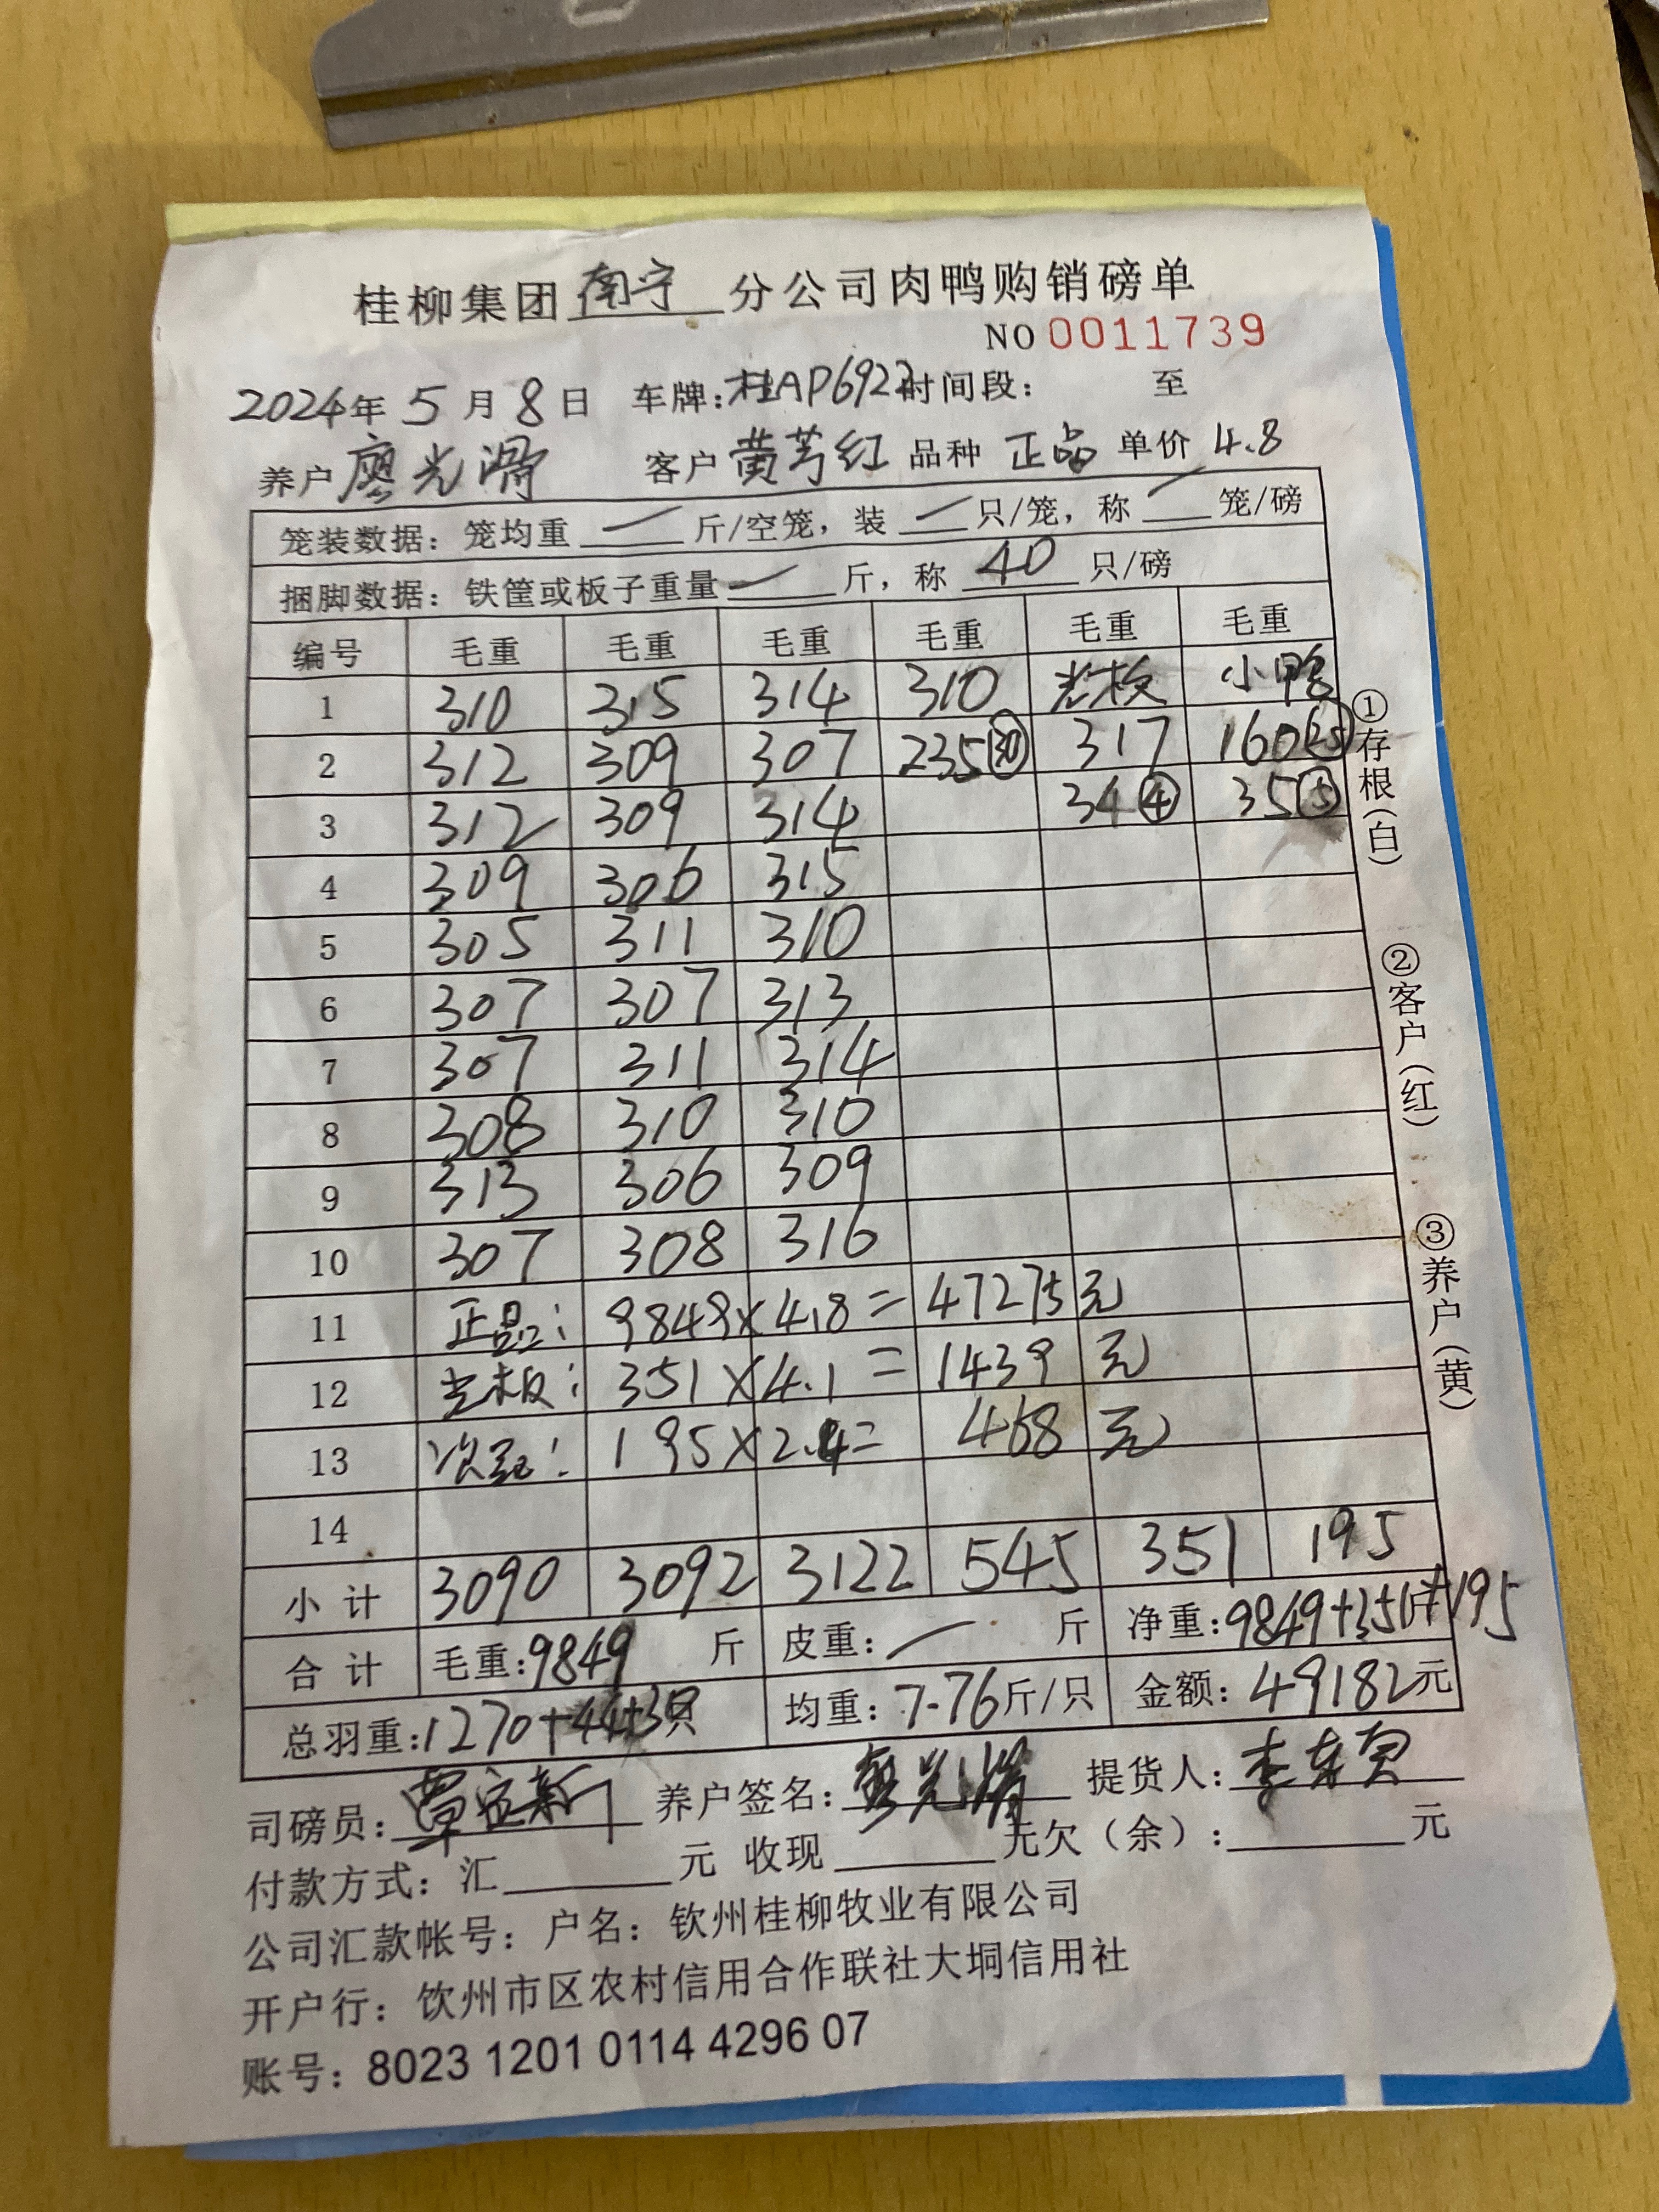 桂柳集团南宁分公司肉鸭购销磅单
NO 0011739
2024年 5 月 8 日 车牌:桂AP6922 时间段: 至
养户 廖光滑 客户 黄芳红 品种 正品 单价 4.8
笼装数据: 笼均重 一 斤/空笼, 装 一 只/笼, 称 一 笼/磅
捆脚数据: 铁筐或板子重量 一 斤, 称 40 只/磅
编号 毛重 毛重 毛重 毛重 毛重 毛重
1 310 315 314 310 光板 小鸭
2 312 309 307 235㉚ 317 160㉕
3 312 309 314 34④ 35⑤
4 309 306 315
5 305 311 310
6 307 307 313
7 307 311 314
8 308 310 310
9 313 306 309
10 307 308 316
11 正品: 9849×4.8= 47275元
12 光板: 351×4.1= 1439 元
13 195×2.4= 468 元
14
小 计 3090 3092 3122 545 351 195
合 计 毛重:9849 斤 皮重: 一 斤 净重:9849+351+195
总羽重:1270+44+30只 均重: 7.76斤/只 金额: 49182元
司磅员: 养户签名:廖光滑 提货人:
付款方式: 汇 元 收现 元欠(余): 元
公司汇款帐号: 户名: 钦州桂柳牧业有限公司
开户行: 钦州市区农村信用合作联社大垌信用社
账号: 8023 1201 0114 4296 07
①存根(白) ②客户(红) ③养户(黄)